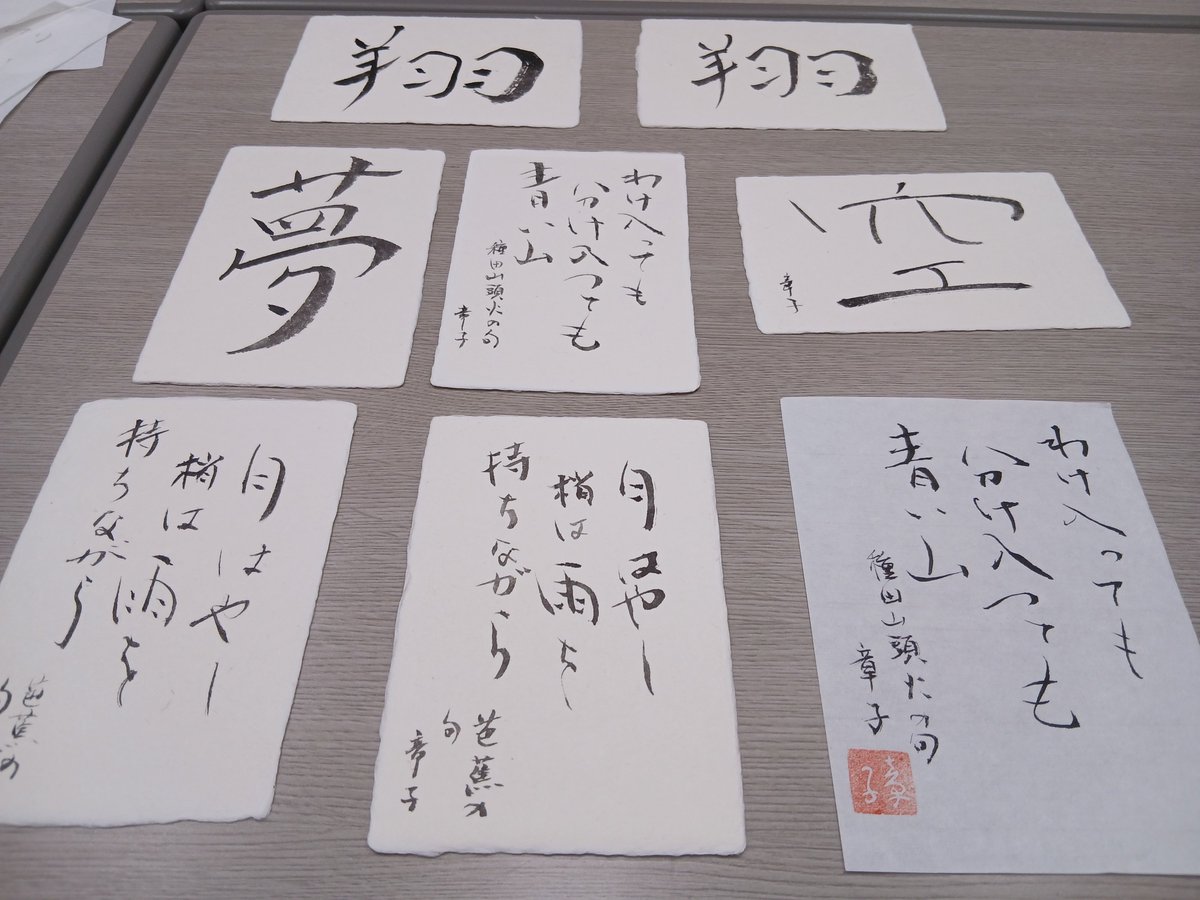 翔
翔
夢
わけ入っても
分け入っても
青い山
種田山頭火の句
章子
空
章子
月はやし
梢は雨を
持ちながら
芭蕉の
句
月はやし
梢は雨を
持ちながら
芭蕉の
句
章子
わけ入っても
分け入っても
青い山
種田山頭火の句
章子
章子